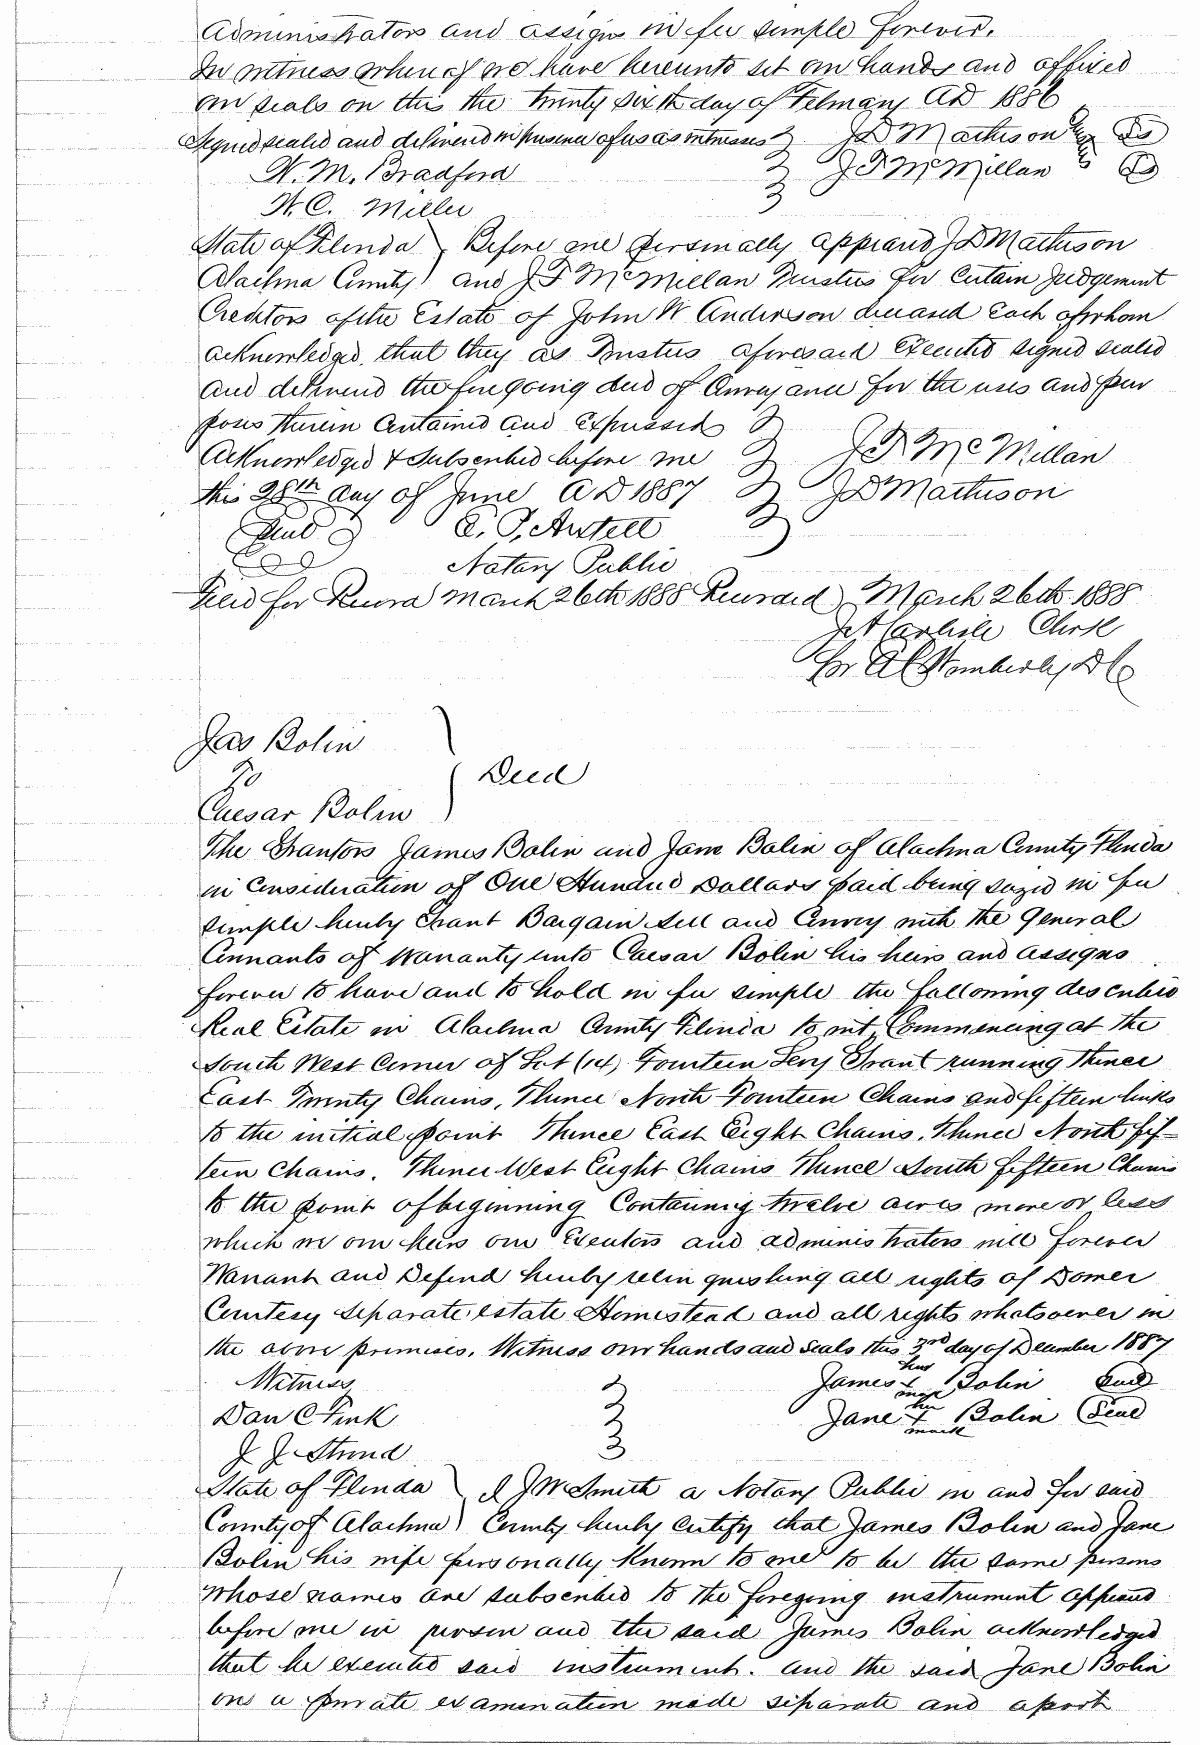 Administrators and assigns in fee simple forever.
In witness whereof we have hereunto set our hands and affixed
our seals on this the twenty sixth day of February AD 1886
Signed sealed and delivered in presence of us as witnesses } J D Matheson Trustees Ls
W. M. Bradford } J F McMillan Ls
H. C. Miller
State of Florida } Before me personally appeared J D Matheson
Alachua County } and J F McMillan Trustees for certain Judgement
Creditors of the Estate of John W Anderson deceased each of whom
acknowledged that they as Trustees aforesaid executed signed sealed
and delivered the foregoing deed of Conveyance for the uses and pur
poses therein contained and expressed }
Acknowledged & subscribed before me } J F McMillan
this 28th day of June AD 1887 } J D Matheson
Seal
Notary Public
Filed for Record March 26th 1888 Recorded March 26th 1888
Carlisle Clerk
for D C
Jas Bolin }
To } Deed
Caesar Bolin }
The Grantors James Bolin and Jane Bolin of Alachua County Florida
in Consideration of One Hundred Dollars paid being seized in fee
simple hereby Grant Bargain sell and Convey with the General
Covenants of Warranty unto Caesar Bolin his heirs and assigns
forever to have and to hold in fee simple the following described
Real Estate in Alachua County Florida to wit, Commencing at the
South West Corner of Lot (14) Fourteen Levy Grant running thence
East Twenty Chains, Thence North Fourteen Chains and fifteen links
to the initial point Thence East Eight Chains, Thence North fif-
teen Chains. Thence West Eight Chains Thence South fifteen Chains
to the point of beginning Containing twelve acres more or less
which we our heirs our Executors and administrators will forever
Warrant and Defend hereby relinquishing all rights of Dower
Courtesy separate estate Homestead and all rights whatsoever in
the above premises. Witness our hands and seals this 3rd day of December 1887
Witness } James his + mark Bolin Seal
Dan C Fink } Jane her + mark Bolin Seal
J J Stroud
State of Florida } I J W Smith a Notary Public in and for said
County of Alachua } County hereby certify that James Bolin and Jane
Bolin his wife personally known to me to be the same persons
whose names are subscribed to the foregoing instrument appeared
before me in person and the said James Bolin acknowledged
that he executed said instrument. And the said Jane Bolin
on a private examination made separate and apart